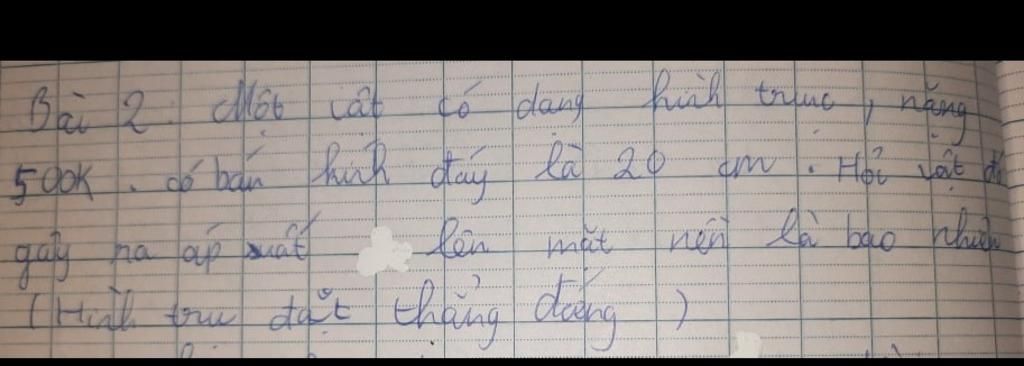 Bài 2. Một vật có dạng hình trụ, nặng
500K. có bán kính đáy là 20 cm. Hỏi vật đó
gây ra áp suất lên mặt nền là bao nhiêu
(Hình trụ đặt thẳng đứng)